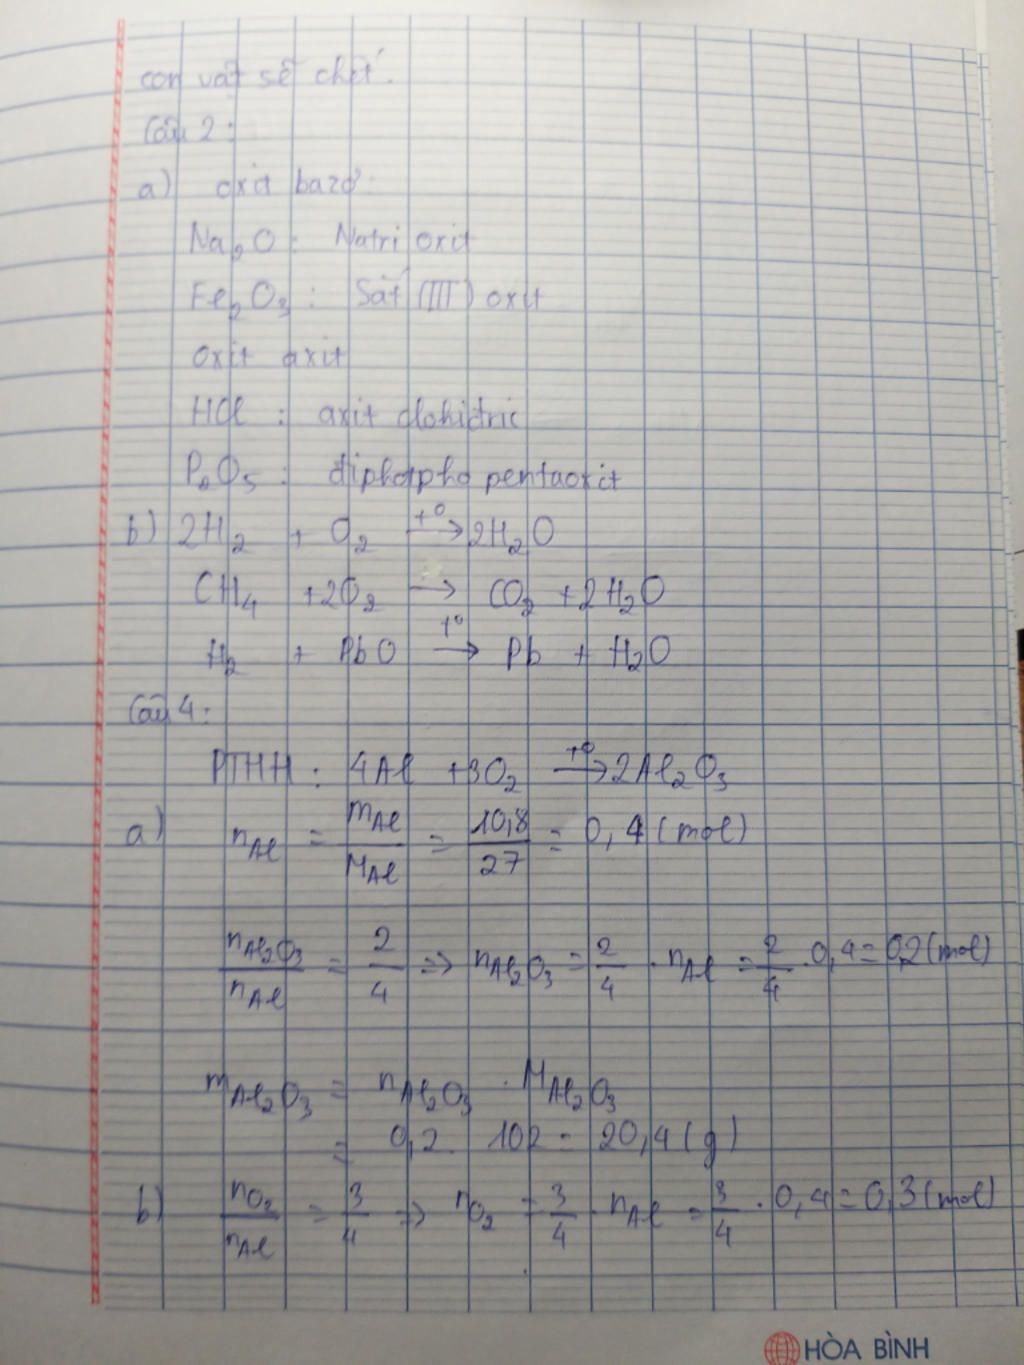 con vật sẽ chết.
Câu 2:
a) oxit bazơ:
Na₂O : Natri oxit
Fe₂O₃ : Sắt (III) oxit
oxit axit
HCl : axit clohidric
P₂O₅ : điphotpho pentaoxit
b) 2H₂ + O₂ →(t°) 2H₂O
CH₄ + 2O₂ → CO₂ + 2H₂O
H₂ + PbO →(t°) Pb + H₂O
Câu 4:
PTHH: 4Al + 3O₂ →(t°) 2Al₂O₃
a) n_Al = m_Al / M_Al = 10,8 / 27 = 0,4 (mol)
n_Al₂O₃ / n_Al = 2/4 => n_Al₂O₃ = 2/4 . n_Al = 2/4 . 0,4 = 0,2 (mol)
m_Al₂O₃ = n_Al₂O₃ . M_Al₂O₃
= 0,2 . 102 = 20,4 (g)
b) n_O₂ / n_Al = 3/4 => n_O₂ = 3/4 . n_Al = 3/4 . 0,4 = 0,3 (mol)
HÒA BÌNH